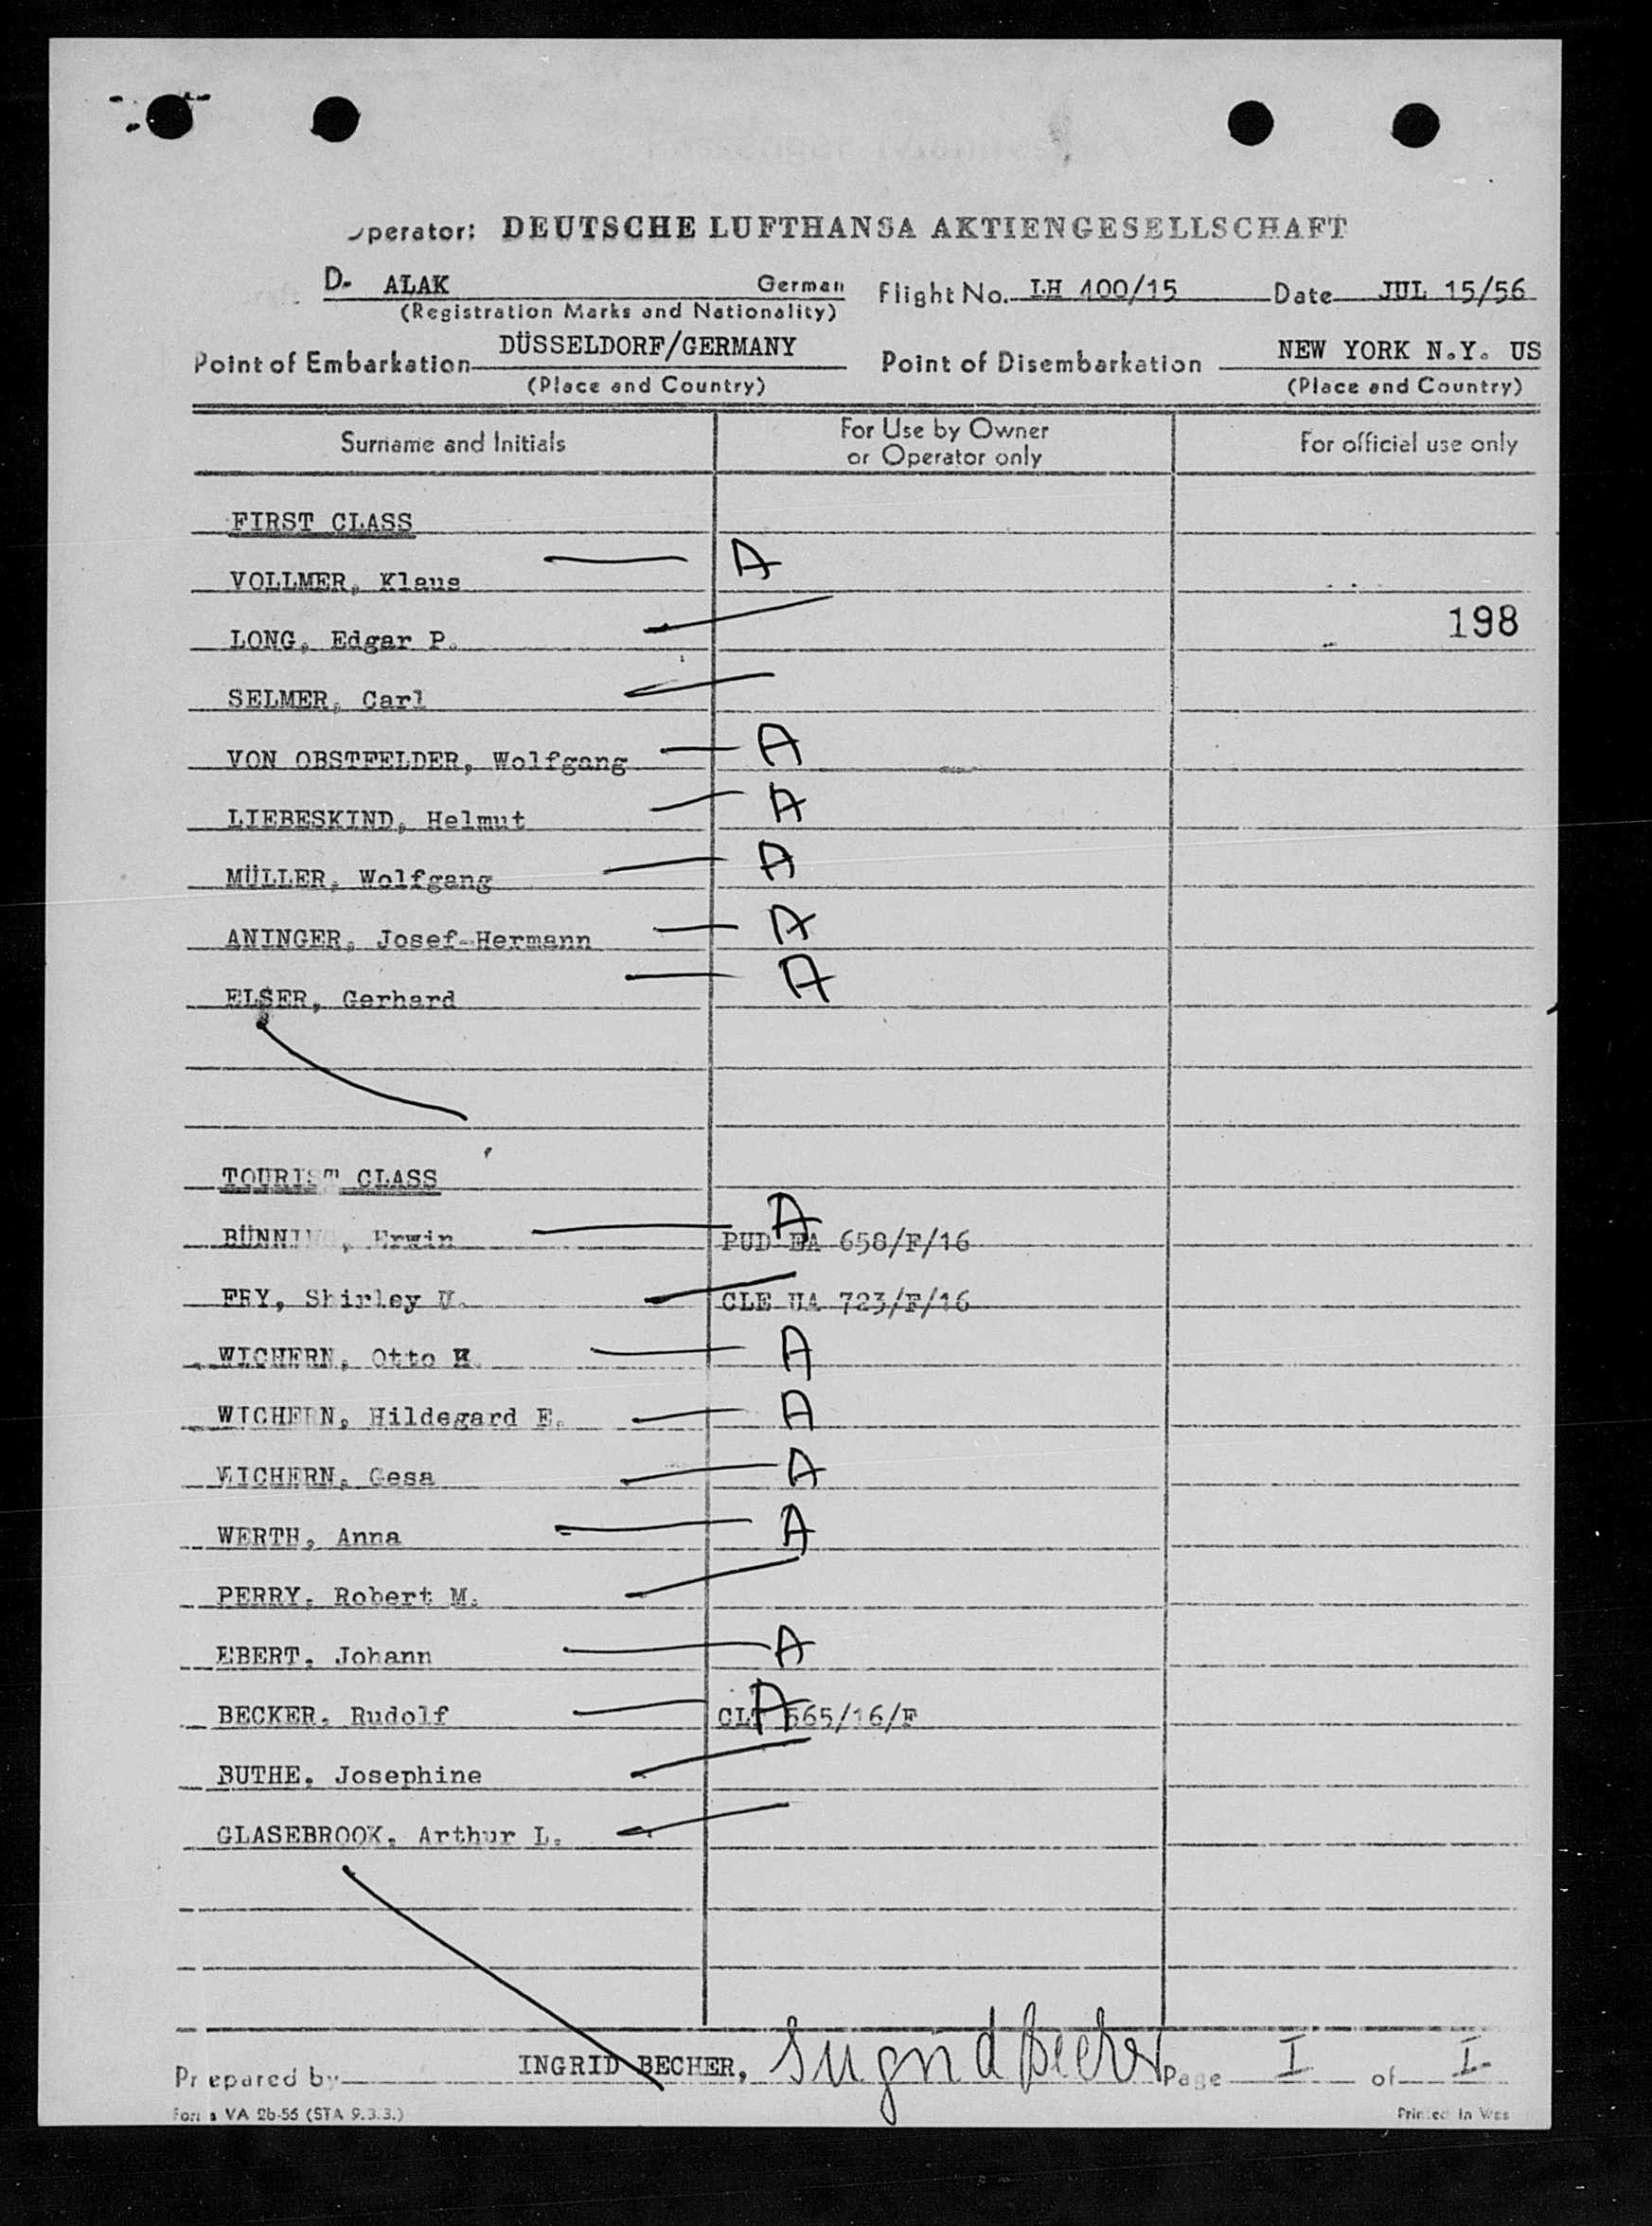 perator: DEUTSCHE LUFTHANSA AKTIENGESELLSCHAFT
D- ALAK German Flight No. LH 400/15 Date JUL 15/56
(Registration Marks and Nationality)
Point of Embarkation DÜSSELDORF/GERMANY Point of Disembarkation NEW YORK N.Y. US
(Place and Country) (Place and Country)
Surname and Initials For Use by Owner or Operator only For official use only
FIRST CLASS
VOLLMER, Klaus A
LONG, Edgar P. 198
SELMER, Carl
VON OBSTFELDER, Wolfgang A
LIEBESKIND, Helmut A
MÜLLER, Wolfgang A
ANINGER, Josef-Hermann A
ELSER, Gerhard A
TOURIST CLASS
BÜNNI, Erwin A PUD EA 658/F/16
FRY, Shirley CLE UA 723/F/16
WICHERN, Otto H. A
WICHERN, Hildegard E. A
WICHERN, Gesa A
WERTH, Anna A
PERRY, Robert M.
EBERT, Johann A
BECKER, Rudolf A 565/16/F
BUTHE, Josephine
GLASEBROOK, Arthur L.
Prepared by INGRID BECHER, Ingrid Becher Page I of I
Form VA 2b-55 (STA 9.3.3.) Printed in Wes